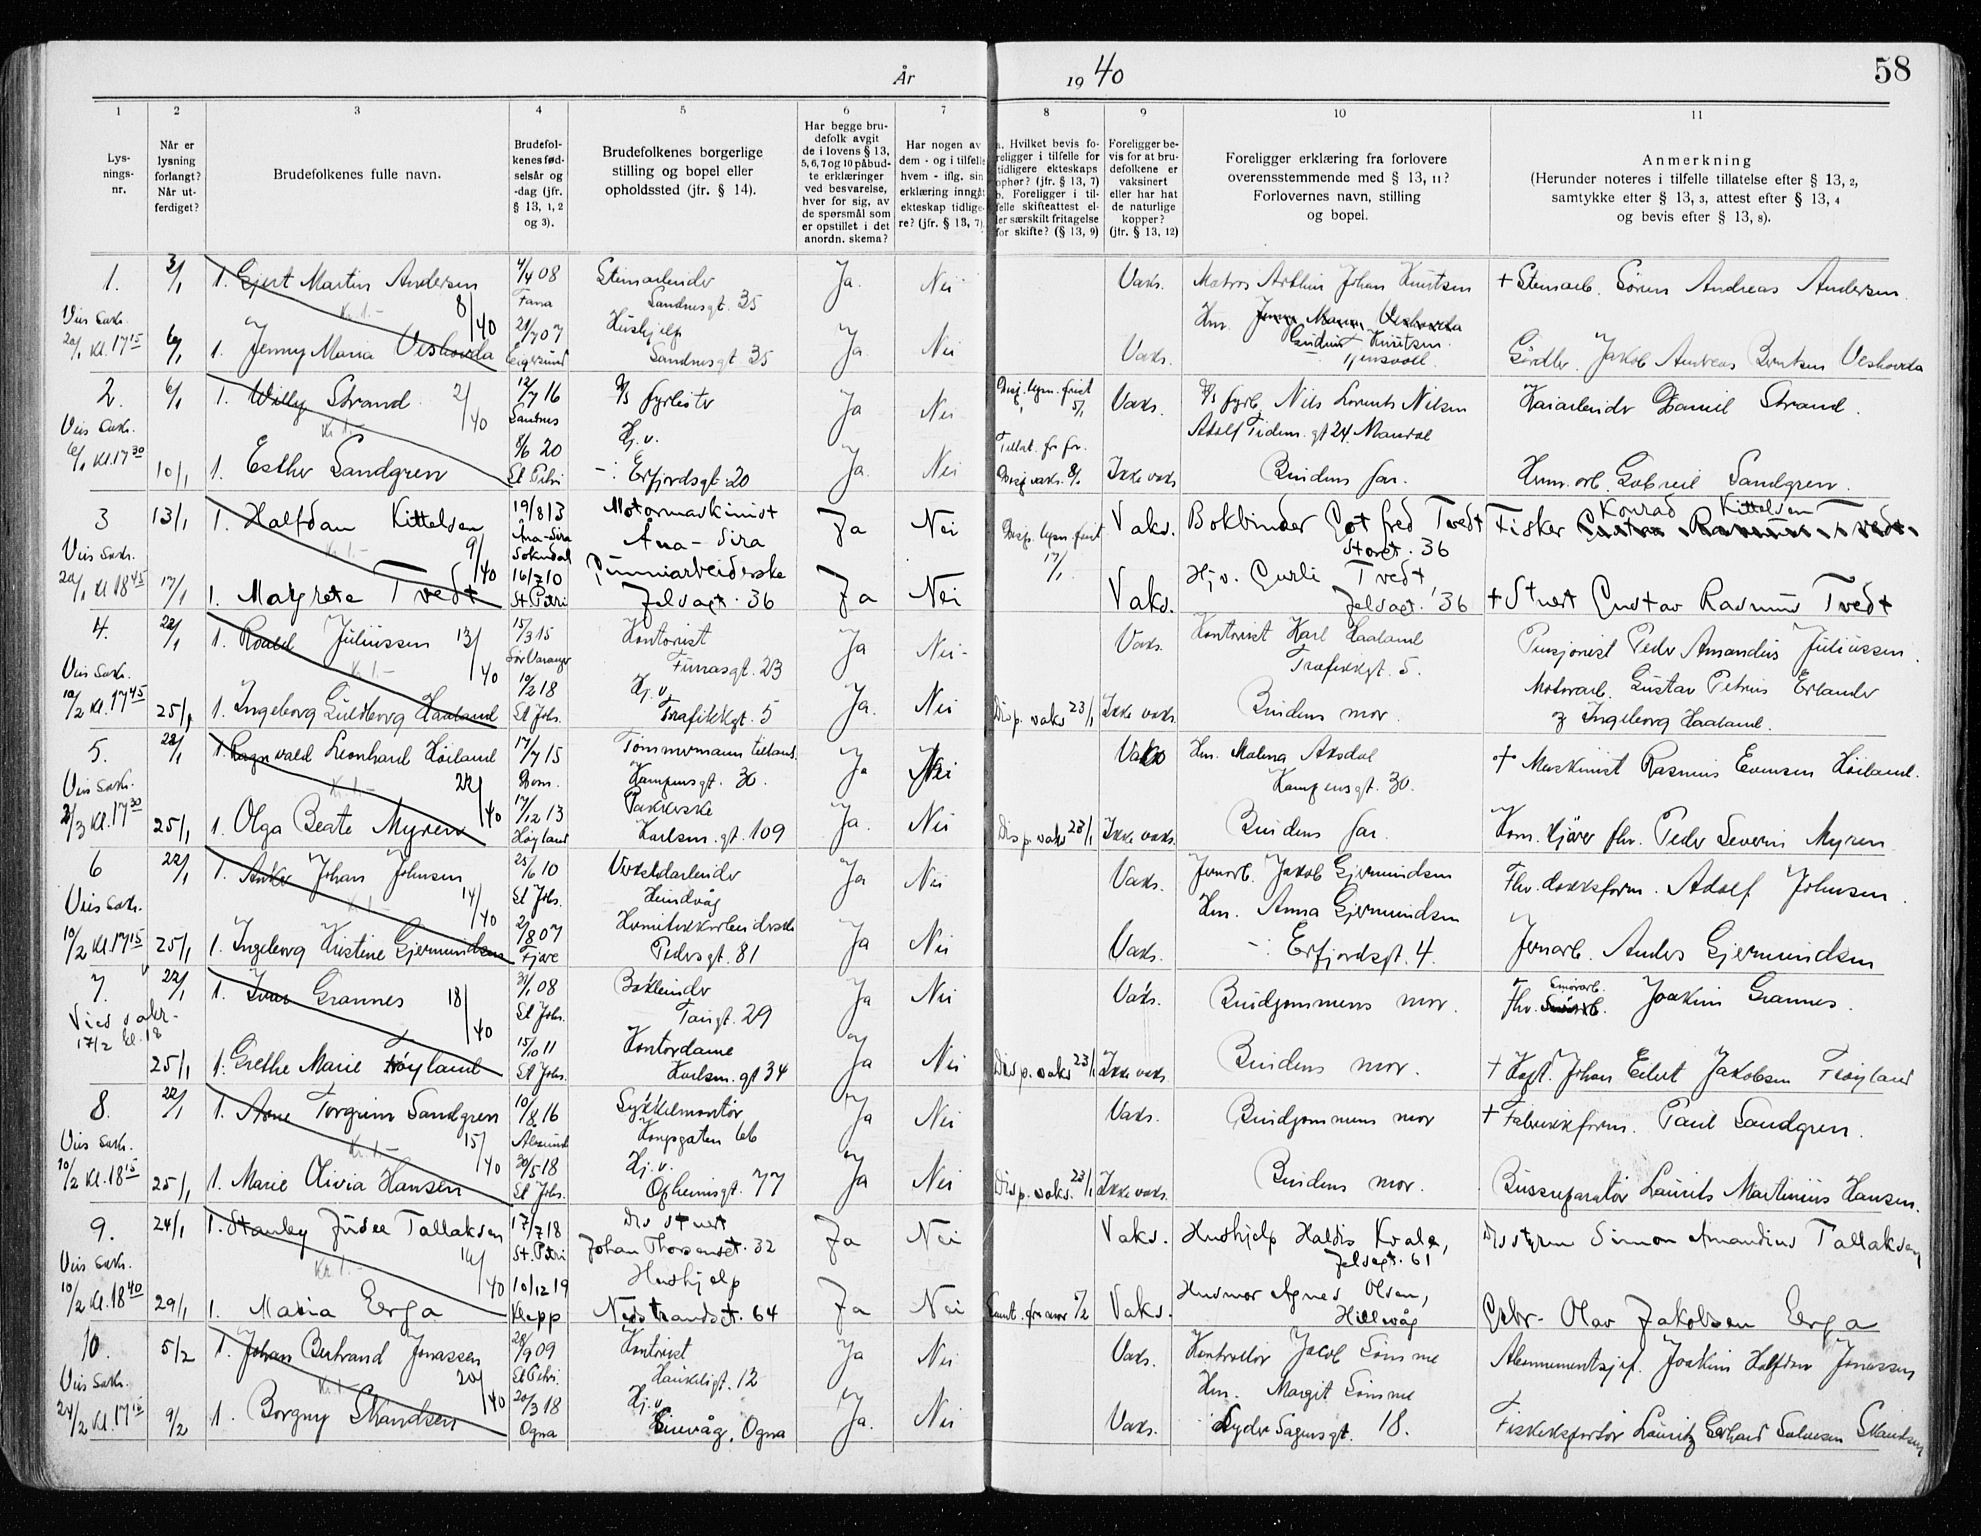 År 1940
58
1 2 3 4 5 6 7 8 9 10 11
Lysningsnr.
Når er lysning forlangt? Når utferdiget?
Brudefolkenes fulle navn.
Brudefolkenes fødselsår og -dag (jfr. § 13, 1, 2 og 3).
Brudefolkenes borgerlige stilling og bopel eller opholdssted (jfr. § 14).
Har begge brudefolk avgit de i lovens § 13, 5, 6, 7 og 10 påbudte erklæringer ved besvarelse, hver for sig, av de spørsmål som er opstillet i det anordn. skema?
Har nogen av dem - og i tilfelle hvem - iflg. sin erklæring inngått ekteskap tidligere? (jfr. § 13, 7)
a. Hvilket bevis foreligger i tilfelle for tidligere ekteskaps ophør? (jfr. § 13, 7) b. Foreligger i tilfelle skifteattest eller særskilt fritagelse for skifte? (§ 13, 9)
Foreligger bevis for at brudefolkene er vaksinert eller har hat de naturlige kopper? (jfr. § 13, 12)
Foreligger erklæring fra forlovere overensstemmende med § 13, 11? Forlovernes navn, stilling og bopel.
Anmerkning (Herunder noteres i tilfelle tillatelse efter § 13, 2, samtykke efter § 13, 3, attest efter § 13, 4 og bevis efter § 13, 8).
1. 3/1 1. Gjert Martin Andersen 4/4 08 Fana Stenarbeider Sandnesgt. 35 Ja. Nei Vaks. Matros Arthur Johan Knutsen + Stenarb. Sören Andreas Andersen.
8/40 Kr. 1.-
Vies Sakr. 20/1 Kl. 17 15 6/1 1. Jenny Maria Veshovda 21/7 07 Eigersund Hushjelp Sandnesgt 35 Ja Nei Vaks. Hm. Jenny Maria Veshovda Gudrun Knutsen. Gördler. Jakob Andreas Berntsen Veshovda
2. 6/1 1. Willy Strand 12/7 16 D/S fyrböter Ja Nei Disp. lysn. frist 5/1 Vaks. D/S fyrb. Nils Lorents Nilsen Adolf Tidem. gt 24. Mandal Kaiarbeider Daniel Strand.
2/40 Kr 1.-
Vies Sakr. 6/1 Kl 17 30 10/1 1. Esther Sandgren 8/6 20 St Petri Hj. v. Erfjordsgt. 20 Ja. Nei Disp vaks. 8/1 Ikke vaks Brudens far. Herm. arb. Gabriel Sandgren.
3 13/1 1. Halfdan Kittelsen 19/8 13 Åna-Sira Sokndal Motormaskinist Åna-Sira Ja Nei Disp. lysn. frist 17/1 Vaks. Bokbinder Gotfred Tvedt Storet. 36 Fisker Konrad Kittelsen Gustav Rasmus Tvedt.
9/40 Kr. 1.-
Vies Sakr. 20/1 Kl 18 45 17/1 1. Margrete Tvedt 16/7 10 St. Petri Gummiarbeiderske Jelsagt. 36 Ja Nei Vaks. Hj. v. Gurli Tvedt Jelsagt. 36 + Stuert Gustav Rasmus Tvedt
4. 22/1 1. Roald Juliussen 15/3 15 Sør Varanger Kontorist Furrasgt. 23 Ja Nei- Vaks. Kontorist Karl Haaland Trafikkgt. 5. Pensjonist Peder Amandus Juliussen.
13/40 Kr. 1.-
Vies Sakr. 10/2 Kl. 17 45 25/1 1. Ingeborg Guldborg Haaland 10/2 18 St Johs. Hj. v. Trafikkgt. 5 Ja. Nei Disp. vaks 23/1 Ikke vaks. Brudens mor. Motorarb. Gustav Petrus Erlander og Ingeborg Haaland.
5. 22/1 1. Ragnvald Leonhard Höiland 17/7 15 Dom. Tömmermann Kampensgt. 30. Ja Nei Vaks Hm. Malena Aksdal Kampensgt. 30. + Maskinist Rasmus Evensen Höiland.
22/40 Kr. 1.-
Vies Sakr. 2/3 Kl. 17 30 25/1 1. Olga Beate Myren 17/12 13 Høyland Pakkerske Karlsm. gt. 109 Ja. Nei Disp. vaks 23/1 Ikke vaks. Brudens far. Kom. kjører fhv. Peder Severin Myren
6 22/1 1. Anker Johan Johnsen 25/6 10 St Johs. Verkstedarbeider Hundvåg Ja Nei Vaks. Jernarb. Jakob Gjermundsen Fhv. dokksform. Adolf Johnsen.
14/40 Kr. 1.-
Vies Sakr. 10/2 Kl 17 15 25/1 1. Ingeborg Kristine Gjermundsen 2/8 07 Fjære Hermetikkarbeiderske Pedersgt. 81 Ja Nei Vaks. Hm. Anna Gjermundsen Erfjordsgt. 4. Jernarb. Anders Gjermundsen
7. 22/1 1. Ivar Grannes 31/1 08 St Johs. Baklender Tangt. 29 Ja Nei Vaks. Brudgommens mor. Fhv. Smörarb. Joakim Grannes.
18/40
Vies sakr. 17/2 kl. 18 25/1 1. Grethe Marie Tröyland 15/10 11 St Johs. Kontordame Karlsm. gt 34 Ja Nei Disp. vaks 23/1 Ikke vaks. Brudens mor. + Kapt. Johan Eilert Jakobsen Tröyland
8. 22/1 1. Arne Torgrim Sandgren 10/8 16 Alesund Sykkelmontör Kongsgaten 66 Ja Nei Vaks. Brudgommens mor + Fabrikkform. Paul Sandgren.
15/40 Kr. 1.-
Vies Sakr. 10/2 Kl. 18 15 25/1 1. Marie Olivia Hansen 30/5 18 St Johs. Hj. v. Opheimsgt. 77 Ja Nei Disp. vaks. 23/1 Ikke vaks. Brudens mor. Bussreparatör Laurits Martinius Hansen.
9. 24/1 1. Stanley Jusee Tallaksen 17/7 18 St. Petri D/S stuert Johan Thorsenset. 32 Ja Nei Vaks. Hushjelp Haldis Kvale, Jelsagt. 61 D/S styrm Simon Amandius Tallaksen
16/40 Kr. 1.-
Vies Sakr. 10/2 Kl. 18 40 29/1 1. Maria Erga 10/12 19 Klepp Hushjelp Nedstrandsgt. 64 Ja Nei Samt. fra mor 5/2 Vaks. Husmor Agnes Olsen, Hillevåg Grbr. Olav Jakobsen Erga
10. 5/2 1. Johan Bertrand Jonassen 28/9 09 St Petri Kontorist Haukeligt. 12 Ja Nei Vaks. Kontrollör Jacob Sömme Abonnementsjef. Joakim Halfdan Jonassen
20/40 Kr. 1.-
Vies Sakr. 24/2 Kl. 17 15 9/2 1. Borgny Skandsen 20/3 18 Ogna Hj. v. Sirevåg, Ogna Ja. Nei Vaks. Hm. Margit Sömme Lyder Sagensgt. 18. Fiskeeksportör Lauritz Gerhard Salvesen Skandsen